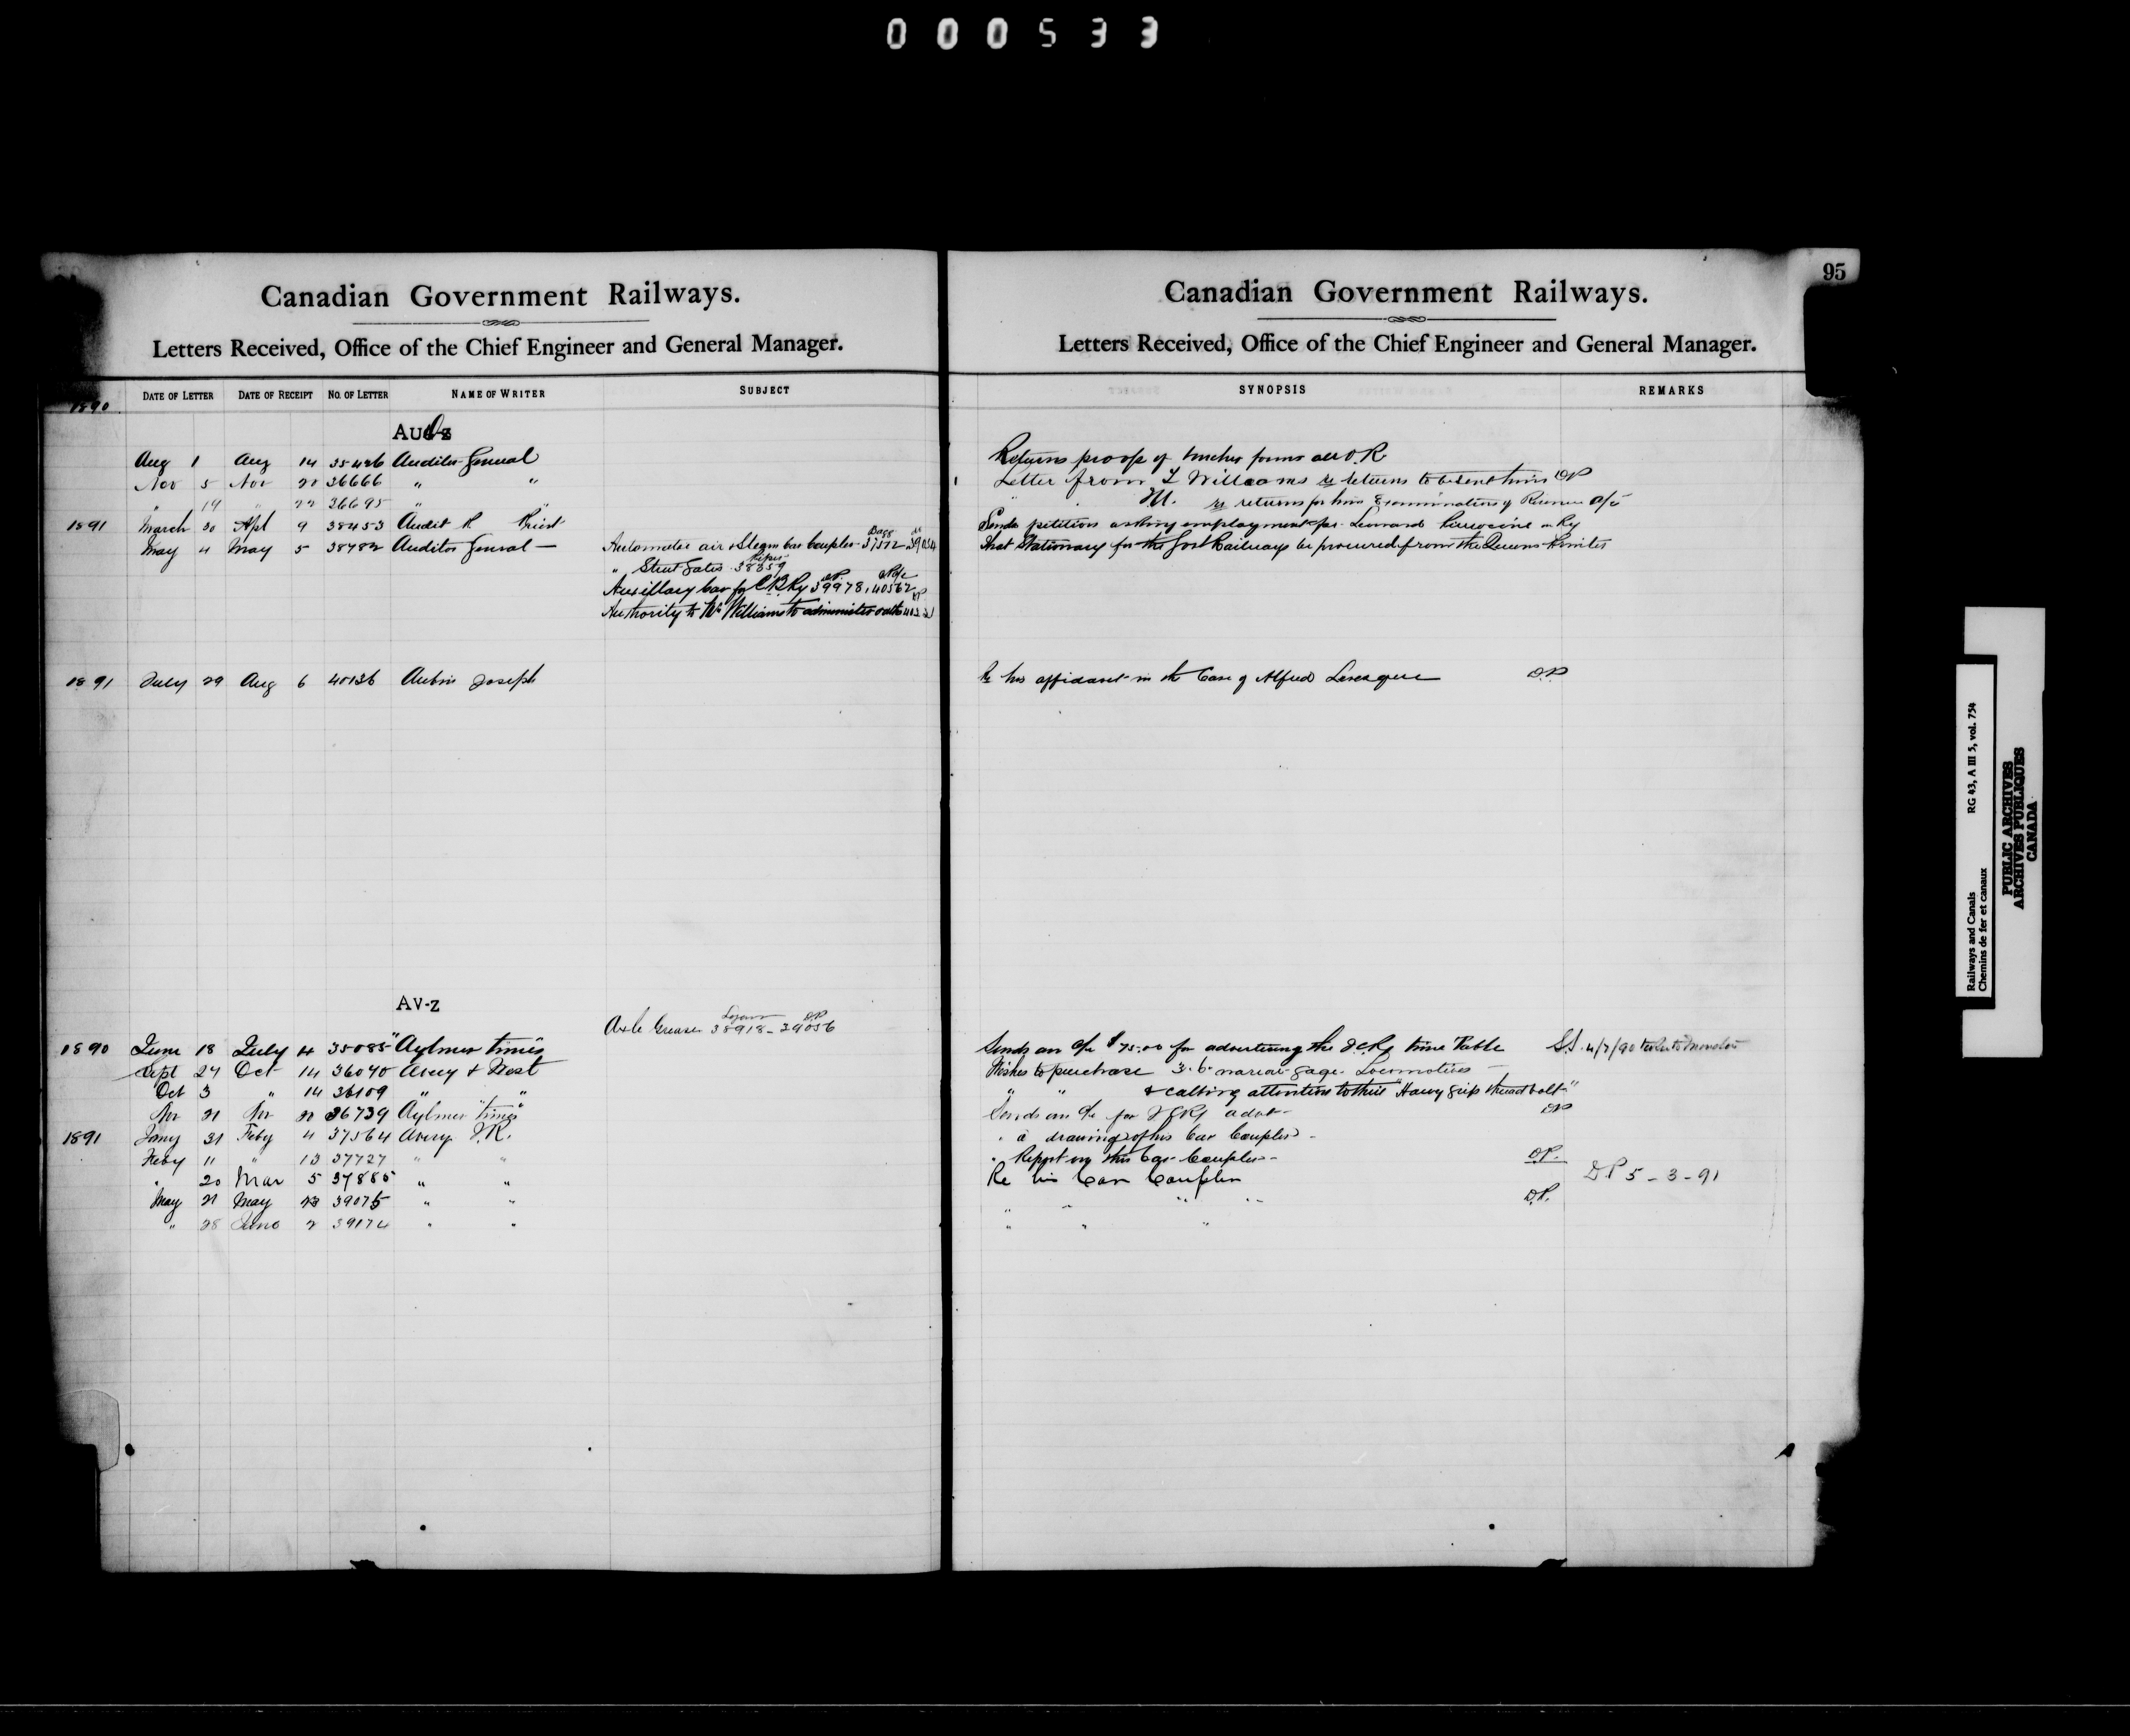 000533
95
Canadian Government Railways.
Letters Received, Office of the Chief Engineer and General Manager.
DATE OF LETTER DATE OF RECEIPT NO. OF LETTER NAME OF WRITER SUBJECT
1890
Aug 1 Aug 14 35426 Auditor General
Nov 5 Nov 20 36666 " "
" 19 " 22 36695 " "
1891 March 30 Apl 9 38453 Audet R
May 4 May 5 38782 Auditor General —
Automatic air & Steam car coupler 37572
" Street Gates 38359
Auxilllary car for CB Ry 39978, 40562
Authority to Mr Williams to administer oaths
1891 July 29 Aug 6 40136 Aubin Joseph
AV-Z
Axle Grease 38918 - 39056
1890 June 18 July 4 35085 "Aylmer times"
Sept 27 Oct 14 36070 Avery &
Oct 3 " 14 36109 " "
Nov 21 Nov 22 36739 Aylmer "times"
1891 Jany 31 Feby 4 37564 Avery J.R.
Feby 11 " 13 37727 " "
" 20 Mar 5 37885 " "
May 21 May 23 39075 " "
" 28 June 2 39174 " "
Canadian Government Railways.
Letters Received, Office of the Chief Engineer and General Manager.
SYNOPSIS REMARKS
Returns proofs of forms all O.K
Letter from T Williams re returns to be sent him DP
" M. re returns for him Examination of Revenue a/c
Sends petition asking employment for Leonard on Ry
That Stationary for the Govt Railways be procured from the Queens Printer
Re his affidavit in the Case of Alfred Levesque D.P
Sends an a/c $75.00 for advertising the I.C.Ry time Table S.S. 4/7/90
Wishes to purchase 3.6 narrow gage Locomotives —
" " & calling attention to their "Harvey grip thread bolt"
Sends an a/c for ICRy advt — DP
" a drawing of his Car Coupler -
" Report on this Car Coupler - D.P.
Re his Car Coupler D.P 5-3-91
" " " " D.P.
" " "
Railways and Canals RG 43, A III 5, vol. 754
Chemins de fer et canaux
PUBLIC ARCHIVES
ARCHIVES PUBLIQUES
CANADA